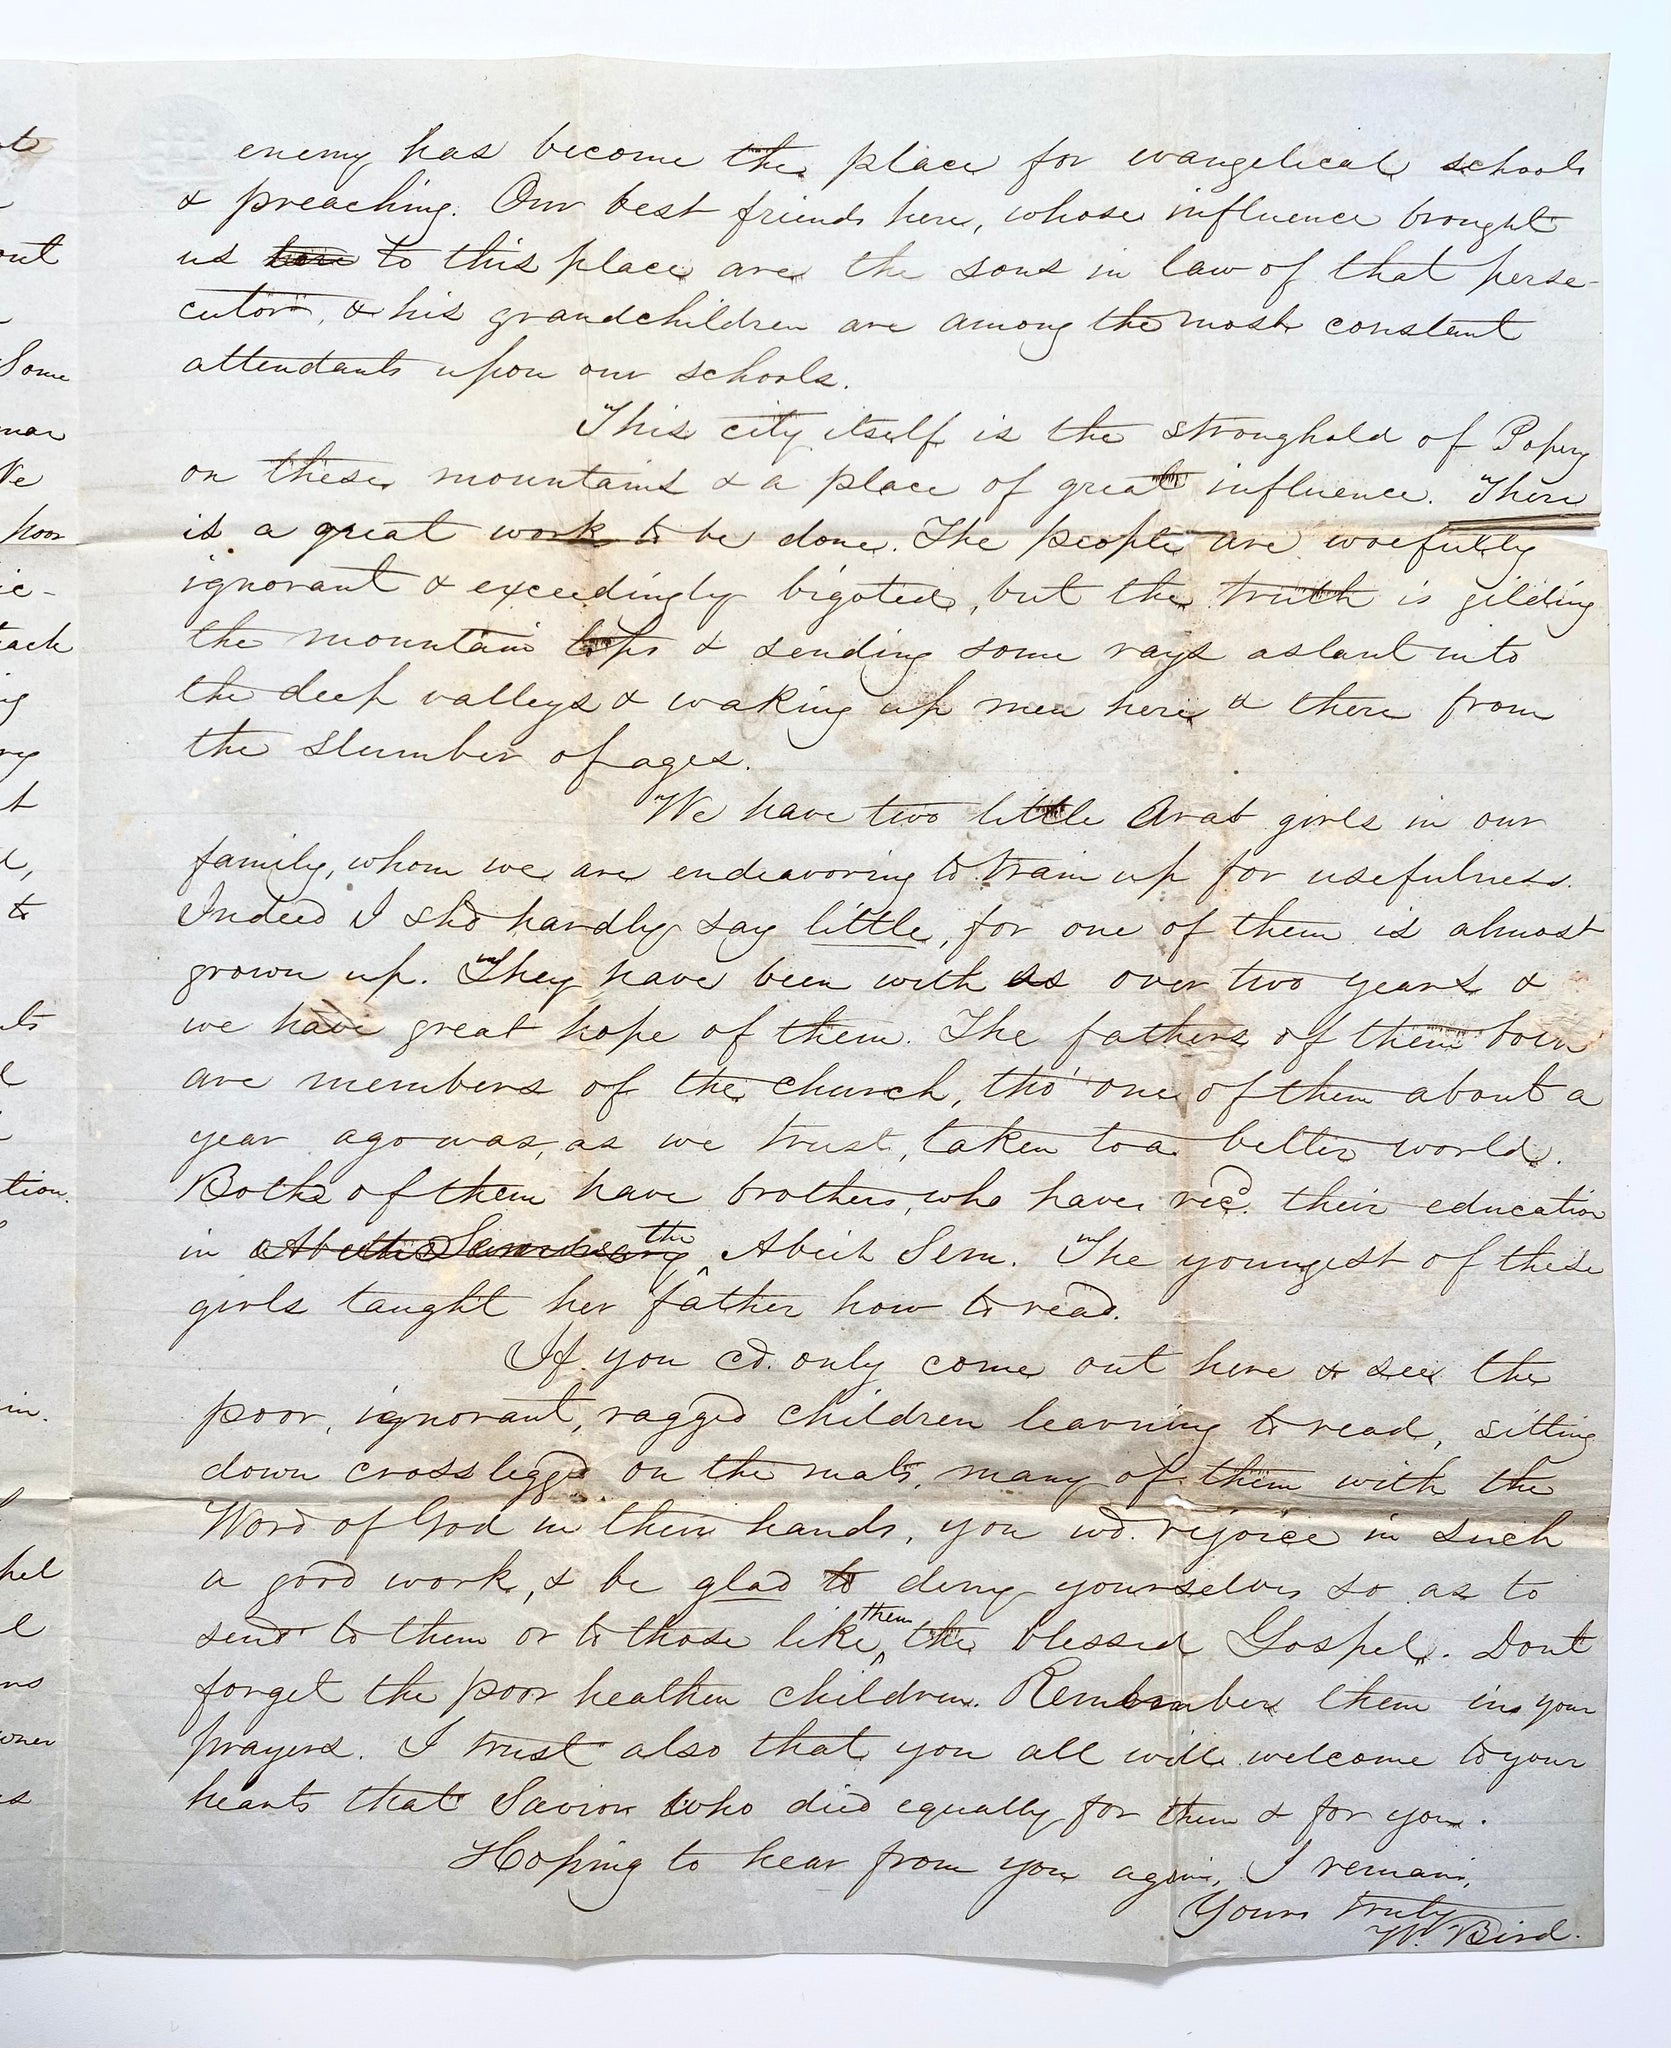 enemy has become the place for evangelical schools
& preaching. Our best friends here, whose influence brought
us here to this place are the sons in law of that perse-
cutor, & his grandchildren are among the most constant
attendants upon our schools.
This city itself is the stronghold of Popery
on these mountains & a place of great influence. There
is a great work to be done. The people are woefully
ignorant & exceedingly bigoted, but the truth is gilding
the mountain tops & sending some rays aslant into
the deep valleys & waking up men here & there from
the slumber of ages.
We have two little Arab girls in our
family, whom we are endeavoring to train up for usefulness.
Indeed I shd hardly say little, for one of them is almost
grown up. They have been with us over two years &
we have great hope of them. The fathers of them both
are members of the church, tho' one of them about a
year ago was, as we trust, taken to a better world.
Both of them have brothers, who have recd. their education
in Abeih Seminary the Abeih Sem. The youngest of these
girls taught her father how to read.
If you cd. only come out here & see the
poor, ignorant, ragged children learning to read, sitting
down crosslegged on the mats, many of them with the
Word of God in their hands, you wd. rejoice in such
a good work, & be glad to deny yourselves so as to
send to them or to those like them, the blessed Gospel. Dont
forget the poor heathen children. Remember them in your
prayers. I trust also that you all will welcome to your
hearts that Savior who died equally for them & for you.
Hoping to hear from you again, I remain,
Yours truly
W. Bird.
ot
out
Some
mar
We
poor
ic-
each
ng
ry
t
d,
to
nts
tion.
in.
pel
ns
wner